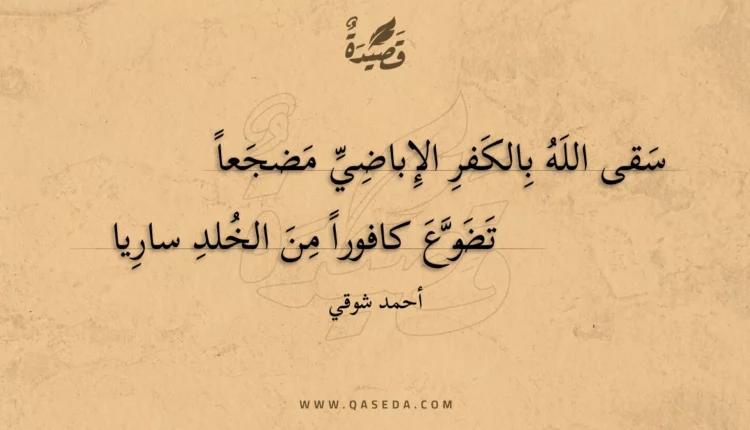 قَصِيدَةٌ
سَقى اللَهُ بِالكَفرِ الإِباضِيِّ مَضجَعاً
تَضَوَّعَ كافوراً مِنَ الخُلدِ سارِيا
أحمد شوقي
WWW.QASEDA.COM